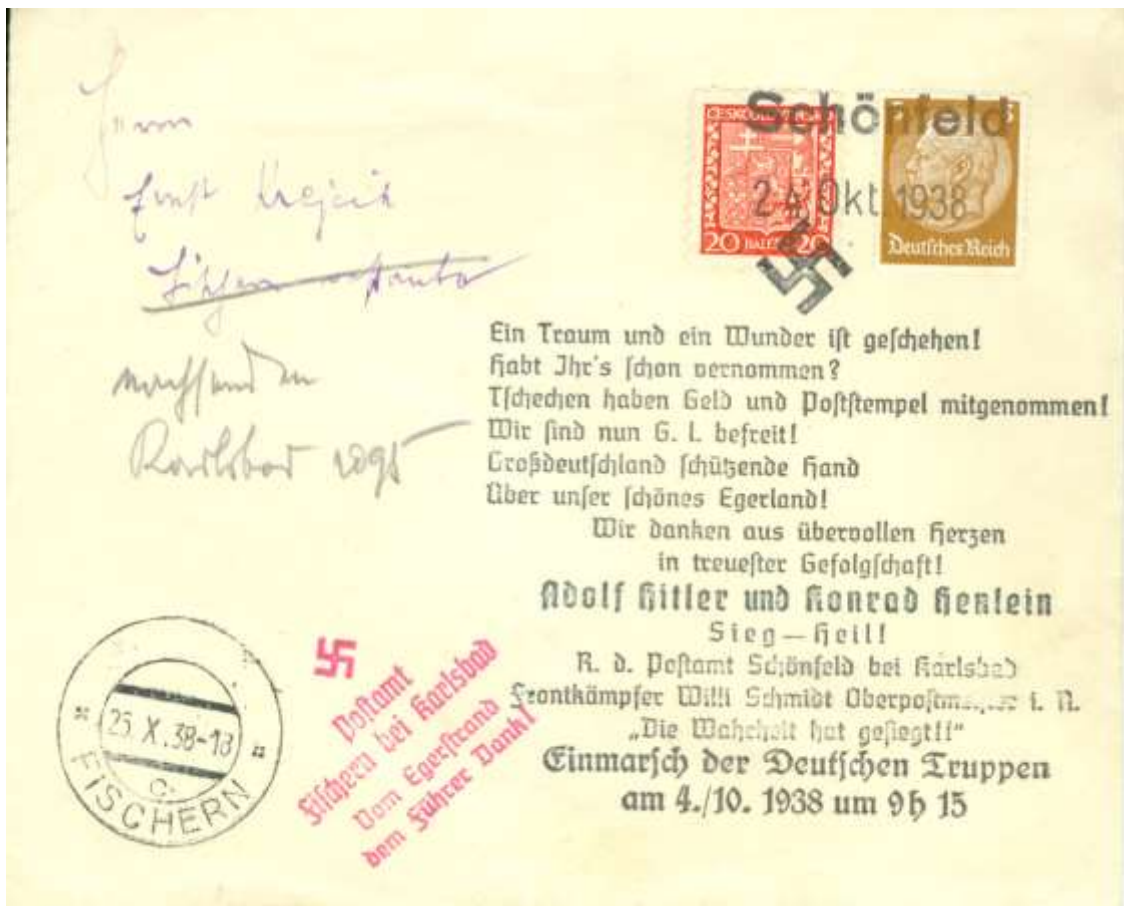 Herrn
Ernst
nachsenden
Karlsbad
ČESKOSLOVENSKO
20 HALÉŘ 20
3
Deutsches Reich
Schönfeld
24. Okt. 1938
Ein Traum und ein Wunder ist geschehen!
Habt Ihr's schon vernommen?
Tschechen haben Geld und Poststempel mitgenommen!
Wir sind nun G. L. befreit!
Großdeutschland schützende Hand
Über unser schönes Egerland!
Wir danken aus übervollen Herzen
in treuester Gefolgschaft!
Adolf Hitler und Konrad Henlein
Sieg – Heil!
R. d. Postamt Schönfeld bei Karlsbad
Frontkämpfer Willi Schmidt Oberpostmeister i. N.
„Die Wahrheit hat gesiegt!!“
Einmarsch der Deutschen Truppen
am 4./10. 1938 um 9h 15
Postamt
Fischern bei Karlsbad
Vom Egerstrand
dem Führer Dank!
25 X. 38-18
C.
FISCHERN